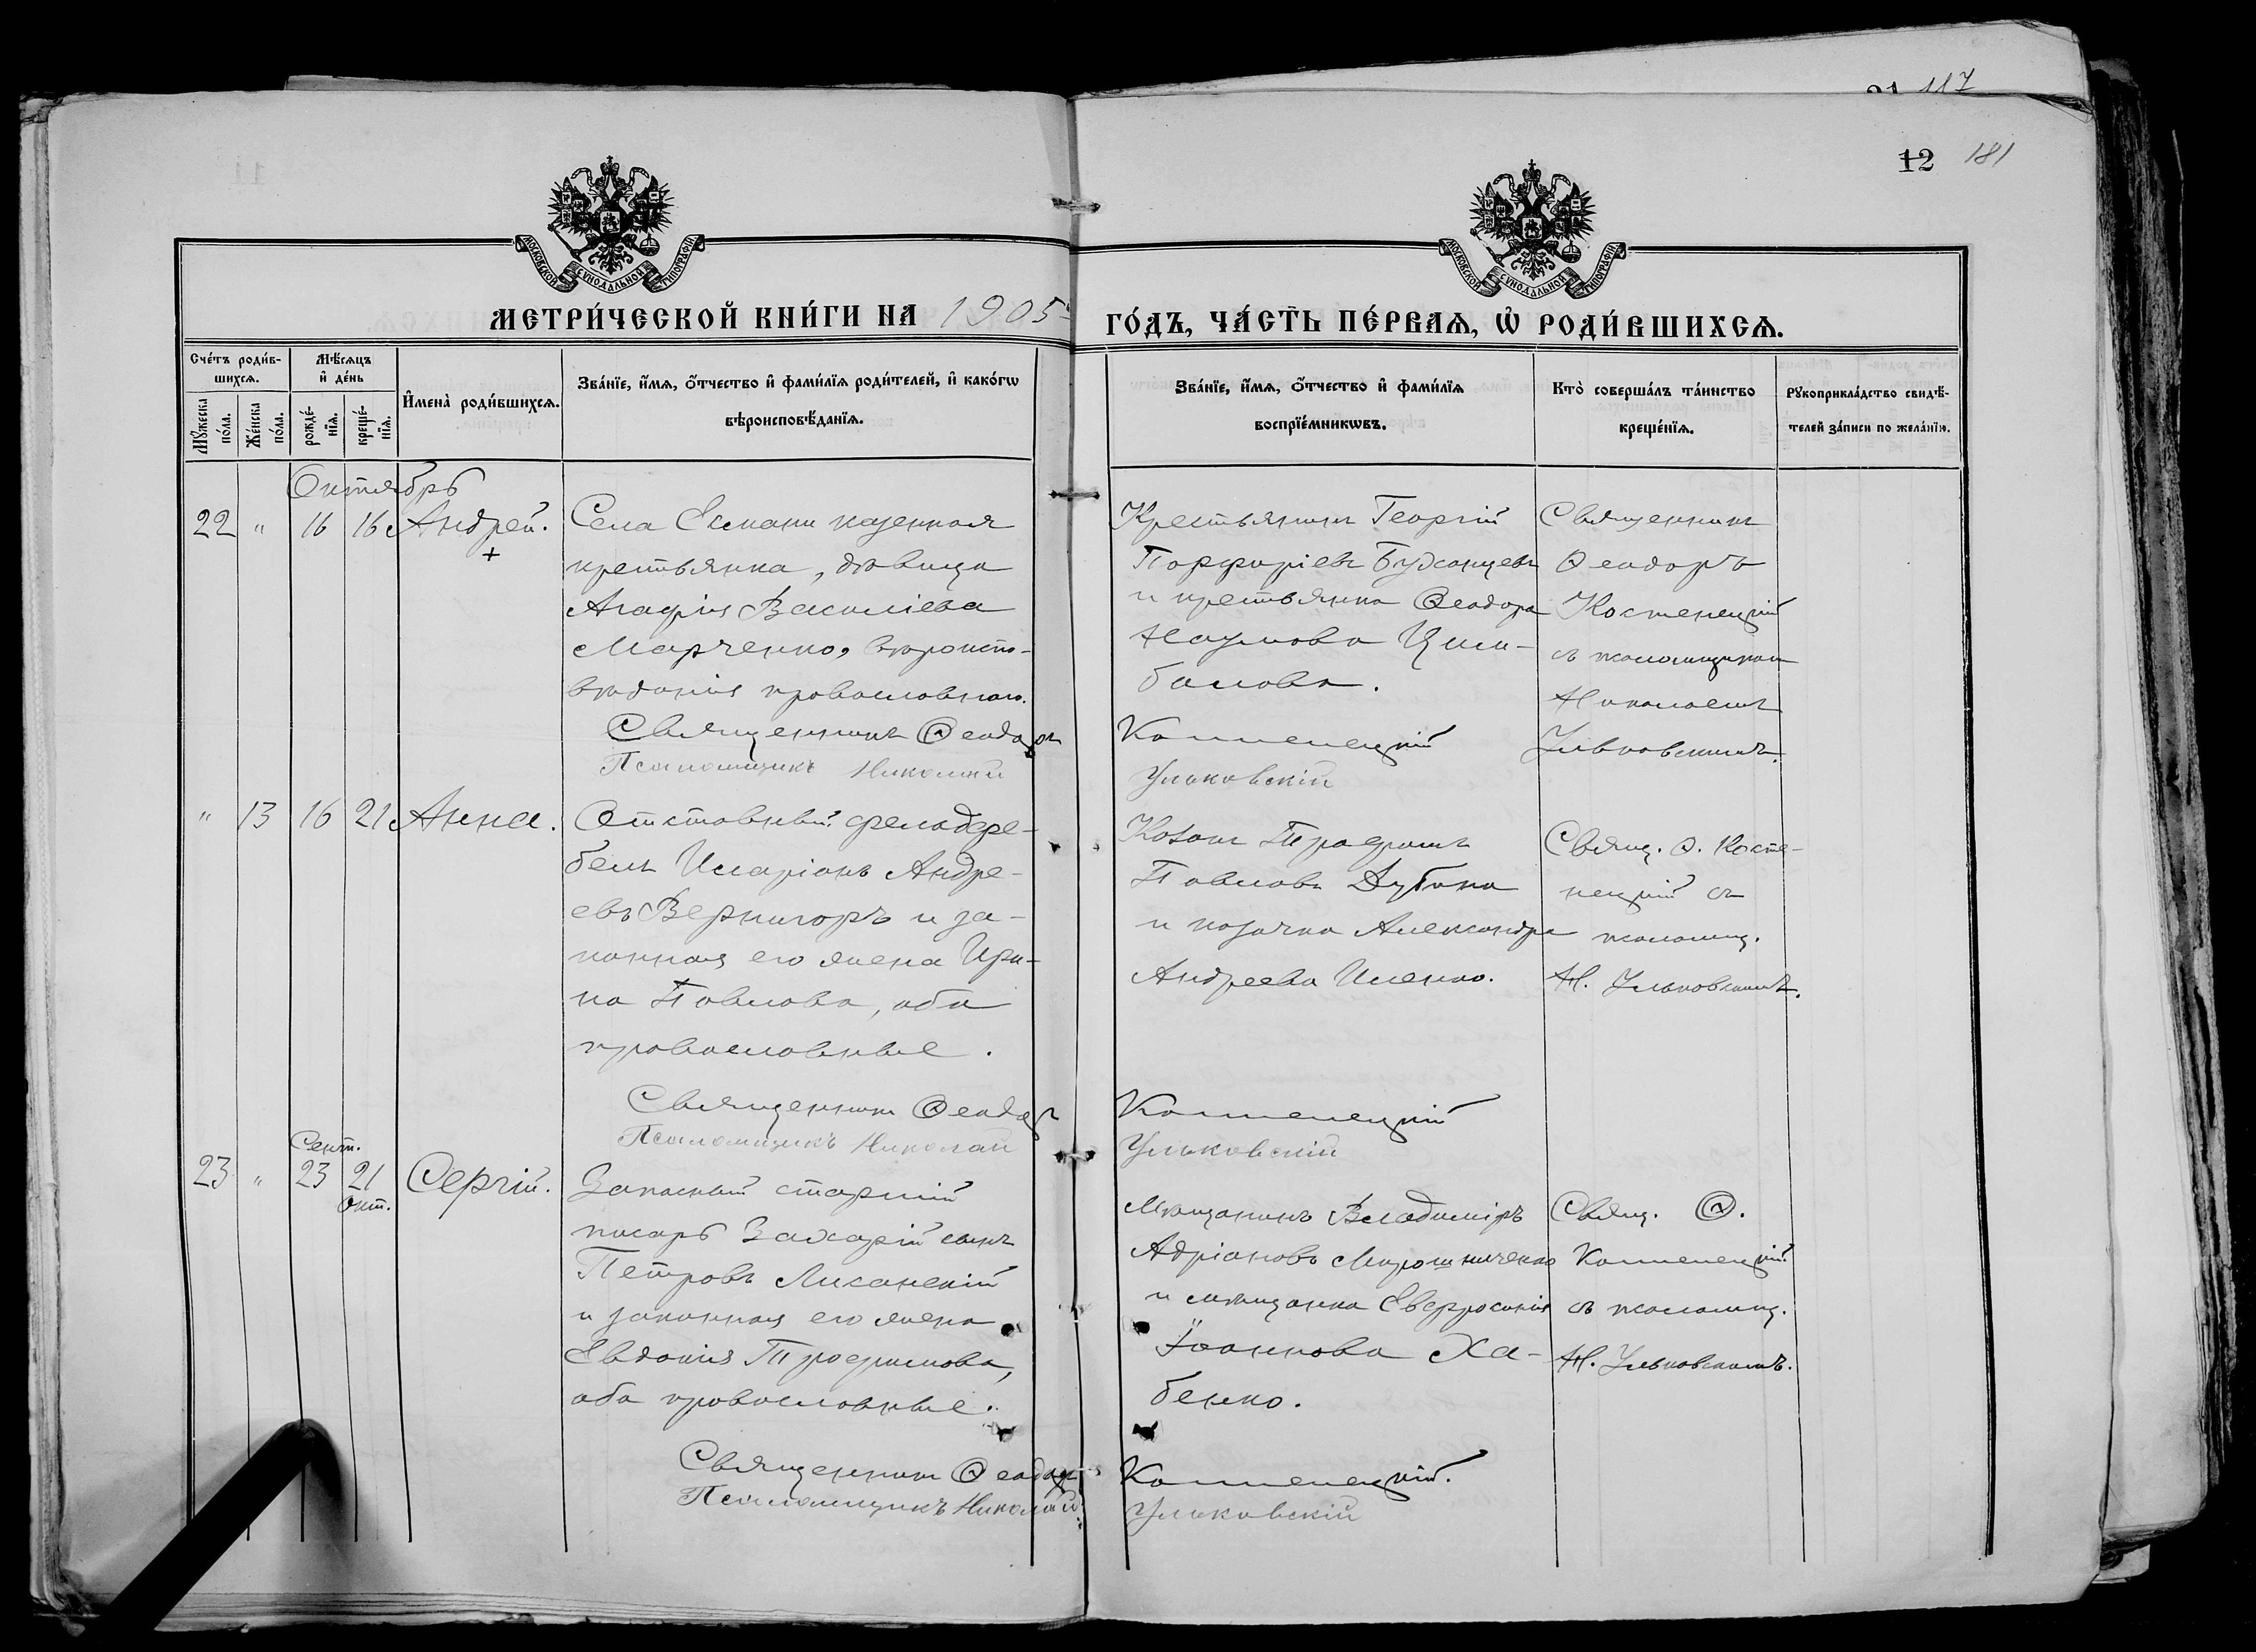 117
12 181
МОСКОВСКОЙ СУНОДАЛЬНОЙ ТИПОГРАФІИ
МОСКОВСКОЙ СУНОДАЛЬНОЙ ТИПОГРАФІИ
МЕТРИ́ЧЕСКОЙ КНИ́ГИ НА 1905
ГО́ДЪ, ЧА́СТЬ ПЕ́РВАѦ, Ѡ҆ РОДИ́ВШИХСѦ.
Сче́тъ роди́в-
шихсѧ.
Мꙋ́жеска по́ла.
Же́нска по́ла.
Мѣ́сѧцъ
и҆ де́нь
рожде́-
нїѧ.
креще́-
нїѧ.
И҆мена̀ роди́вшихсѧ.
Зва́нїе, и҆́мѧ, ѻ҆́тчество и҆ фами́лїѧ роди́телей, и҆ како́гѡ
вѣроисповѣ́данїѧ.
Зва́нїе, и҆́мѧ, ѻ҆́тчество и҆ фами́лїѧ
воспрїе́мникѡвъ.
Кто̀ соверша́лъ та́инство
креще́нїѧ.
Рꙋкоприкла́дство свидѣ́-
телей за́писи по жела́нїю.
Октябрь
22 " 16 16 Андрей.
+
Села Есмани казенная
крестьянка, дѣвица
Агафія Василіева
Марченко, вѣроиспо-
вѣданія православнаго.
Священникъ Ѳеодоръ
Псаломщикъ Николай
Крестьянинъ Георгій
Порфиріевъ
и крестьянка Ѳеодора
Наумова Цим-
балова.
Костенецкій
Ульковскій
Священникъ
Ѳеодоръ
Костенецкій
съ псаломщикомъ
Николаемъ
Ульковскимъ.
" 13 16 21 Анна.
Отставный фельдфе-
бель Иларіонъ Андре-
евъ Вернигоръ и за-
конная его жена Ири-
на Павлова, оба
православные.
Священникъ Ѳеодоръ
Псаломщикъ Николай
Козакъ Трофимъ
Павловъ Дубина
и козачка Александра
Андреева Иленко.
Костенецкій
Ульковскій
Свящ. Ѳ. Косте-
нецкій съ
псаломщ.
Н. Ульковскимъ.
Сент.
23 " 23 21 Сергій.
Окт.
Запасный старшій
писарь Захарій сынъ
Петровъ Лисанскій
и законная его жена
Евдокія Трофимова,
оба православные.
Священникъ Ѳеодоръ
Псаломщикъ Николай
Мѣщанинъ Владиміръ
Адріановъ Мирошниченко
и мѣщанка Евфросинія
Іоаннова Ха-
бенко.
Костенецкій.
Ульковскій
Свящ. Ѳ.
Костенецкій
съ псаломщ.
Н. Ульковскимъ.